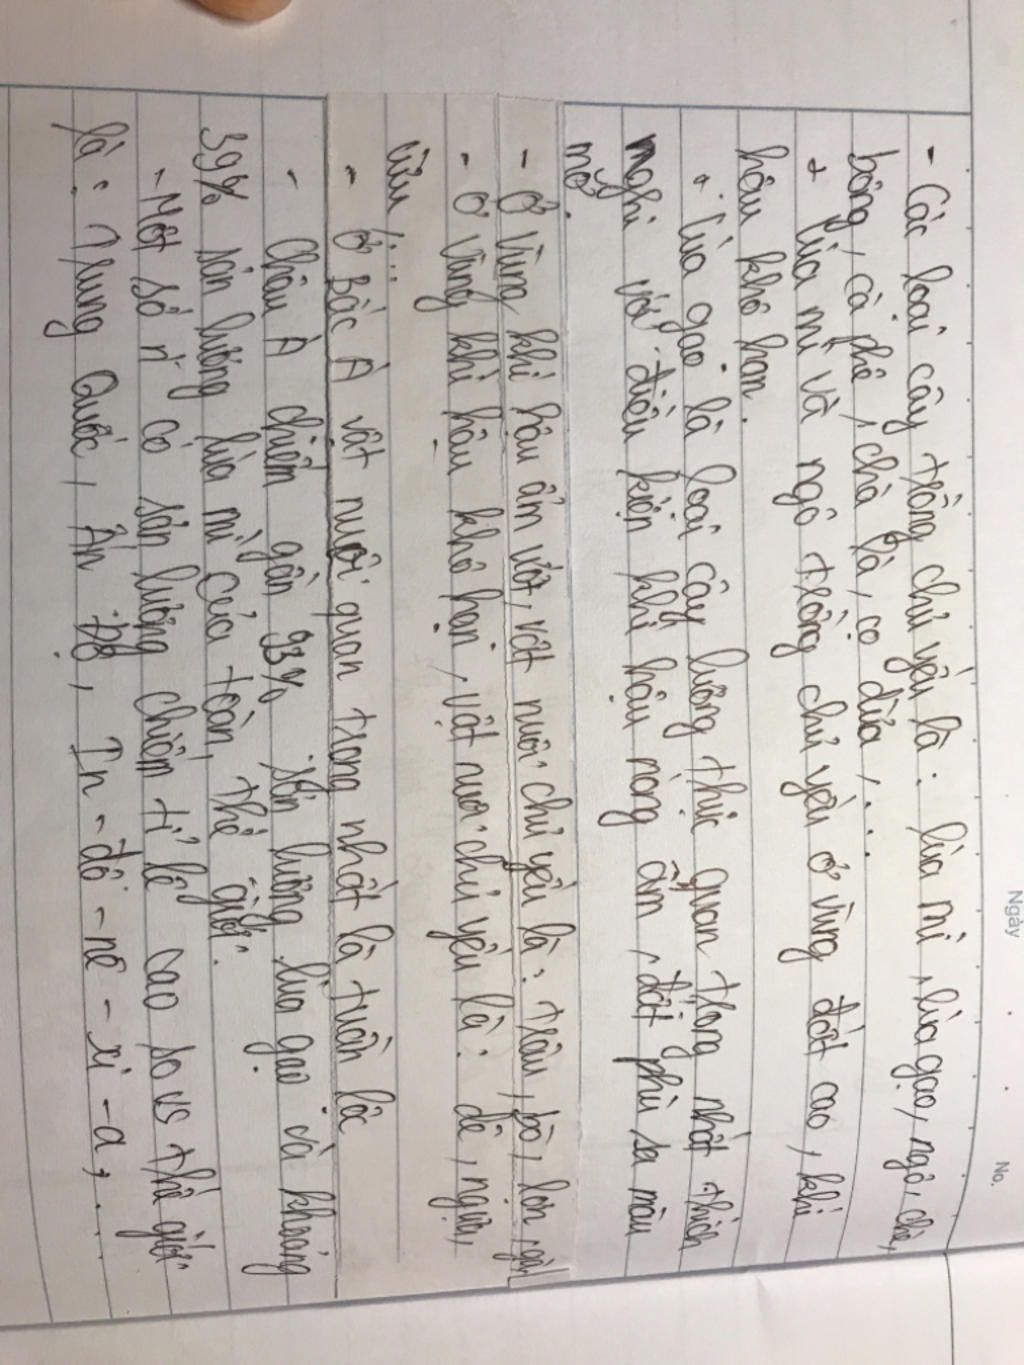 Ngày
No.
- Các loại cây trồng chủ yếu là: lúa mì, lúa gạo, ngô, chè,
bông, cà phê, chà là, cọ dừa, ...
+ lúa mì và ngô trồng chủ yếu ở vùng đất cao, khí
hậu khô hạn.
+ lúa gạo là loại cây lương thực quan trọng nhất thích
nghi với điều kiện khí hậu nóng ẩm, đất phù sa màu
mỡ.
- Ở Vùng khí hậu ẩm ướt, vật nuôi chủ yếu là: trâu, bò, lợn, gà,
- Ở Vùng khí hậu khô hạn, vật nuôi chủ yếu là: dê, ngựa,
cừu, ...
- Ở Bắc Á vật nuôi quan trọng nhất là tuần lộc
- Châu Á chiếm gần 93% sản lượng lúa gạo và khoảng
39% sản lượng lúa mì của toàn thế giới.
- Một số nc có sản lượng chiếm tỉ lệ cao so vs thế giới
là: Trung Quốc, Ấn Độ, In-đô-nê-xi-a, ...